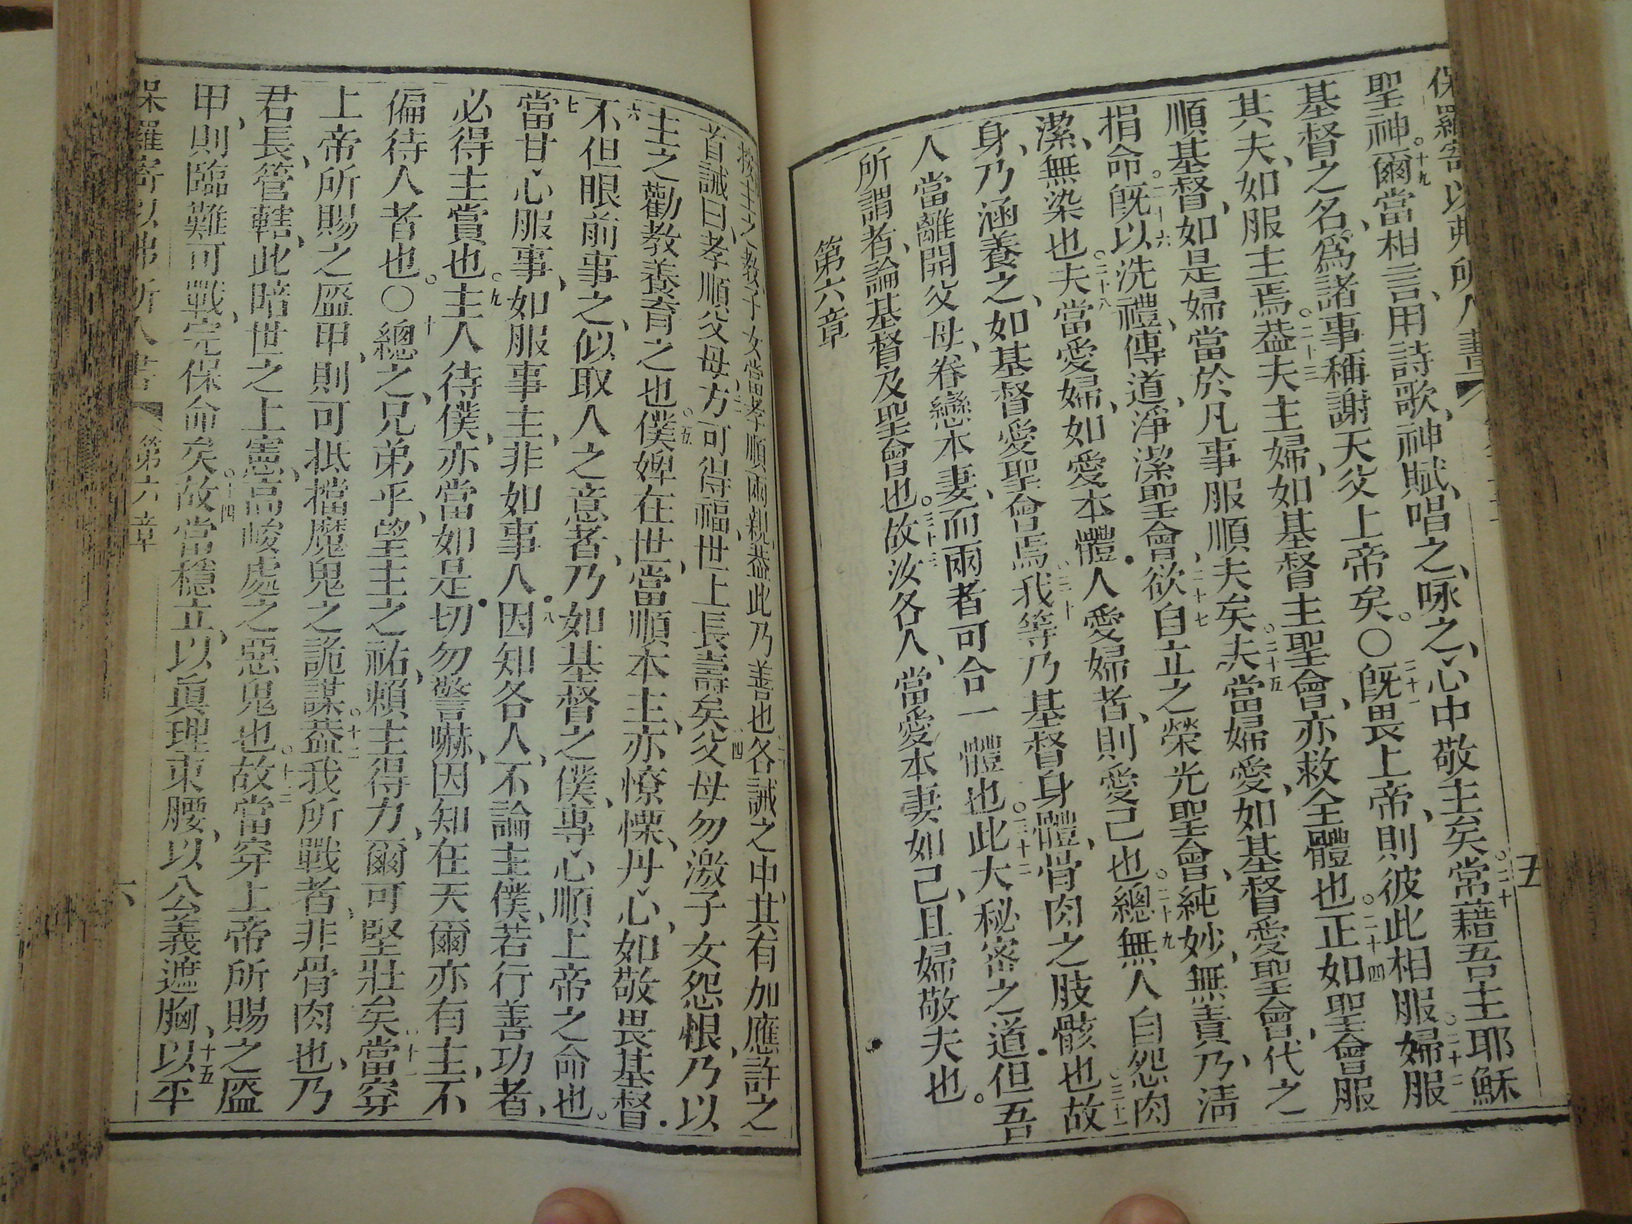 保羅寄以弗所人書
五
聖神十九爾當相言用詩歌神賦唱之咏之心中敬主矣二十常藉吾主耶穌
基督之名爲諸事稱謝天父上帝矣〇二十一既畏上帝則彼此相服二十二婦服
其夫如服主焉二十三葢夫主婦如基督主聖會亦救全體也二十四正如聖會服
順基督如是婦當於凡事服順夫矣二十五夫當婦愛如基督愛聖會代之
捐命二十六既以洗禮傳道淨潔聖會二十七欲自立之榮光聖會純妙無責乃淸
潔無染也二十八夫當愛婦如愛本體人愛婦者則愛己也二十九總無人自怨肉
身乃涵養之如基督愛聖會焉三十我等乃基督身體骨肉之肢骸也三十一故
人當離開父母眷戀本妻而兩者可合一體也三十二此大秘密之道但吾
所謂者論基督及聖會也三十三故汝各人當愛本妻如己且婦敬夫也
第六章
按主之教子女當孝順兩親葢此乃善也二各誡之中其有加應許之
首誡曰孝順父母三方可得福世上長壽矣四父母勿激子女怨恨乃以
主之勸教養育之也五僕婢在世當順本主亦憭慄丹心如敬畏基督
六不但眼前事之似取人之意者乃如基督之僕專心順上帝之命也
七當甘心服事如服事主非如事人八因知各人不論主僕若行善功者
必得主賞也九主人待僕亦當如是切勿警嚇因知在天爾亦有主不
偏待人者也〇十總之兄弟乎望主之祐賴主得力爾可堅壯矣十一當穿
上帝所賜之盔甲則可抵擋魔鬼之詭謀十二葢我所戰者非骨肉也乃
君長管轄此暗世之上憲高峻處之惡鬼也十三故當穿上帝所賜之盔
甲則臨難可戰完保命矣十四故當穩立以眞理束腰以公義遮胸十五以平
保羅寄以弗所人書
第六章
六